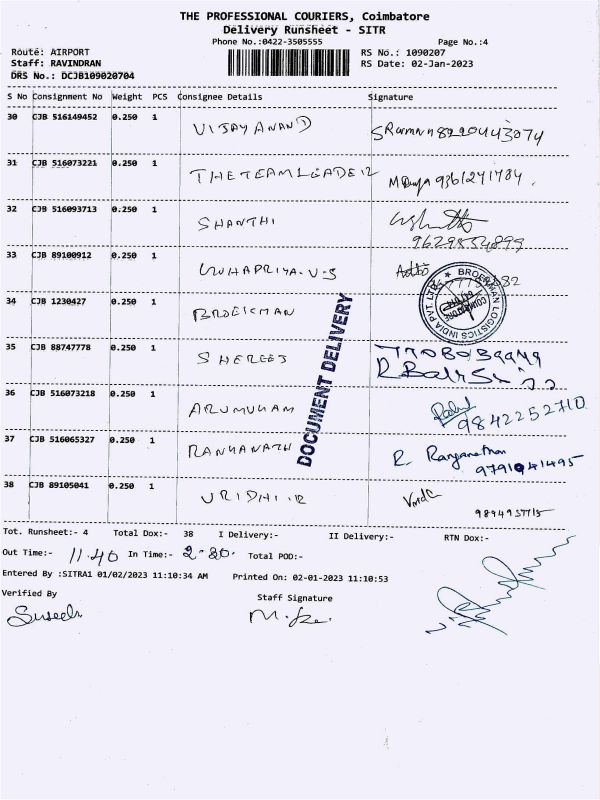 THE PROFESSIONAL COURIERS, Coimbatore
Delivery Runsheet - SITR
Phone No.:0422-3505555
Page No.:4
Route: AIRPORT
RS No.: 1090207
Staff: RAVINDRAN
RS Date: 02-Jan-2023
DRS No.: DCJB109020704
S No Consignment No Weight PCS Consignee Details Signature
30 CJB 516149452 0.250 1 VIJAY ANAND
31 CJB 516073221 0.250 1 THETEAMLEADER 9361271784
32 CJB 516093713 0.250 1 SHANTHI
33 CJB 89100912 0.250 1
34 CJB 1230427 0.250 1 BROEKMAN
BROEKMAN LOGISTICS INDIA PVT. LTD.
COIMBATORE
35 CJB 88747778 0.250 1
36 CJB 516073218 0.250 1 ARUMUGAM 9842252710
37 CJB 516065327 0.250 1 RANGANATH R. Ranganathan
9791941495
38 CJB 89105041 0.250 1 VRIDHI.R
DOCUMENT DELIVERY
Tot. Runsheet:- 4 Total Dox:- 38 I Delivery:- II Delivery:- RTN Dox:-
Out Time:- 11.40 In Time:- Total POD:-
Entered By :SITRA1 01/02/2023 11:10:34 AM Printed On: 02-01-2023 11:10:53
Verified By
Staff Signature